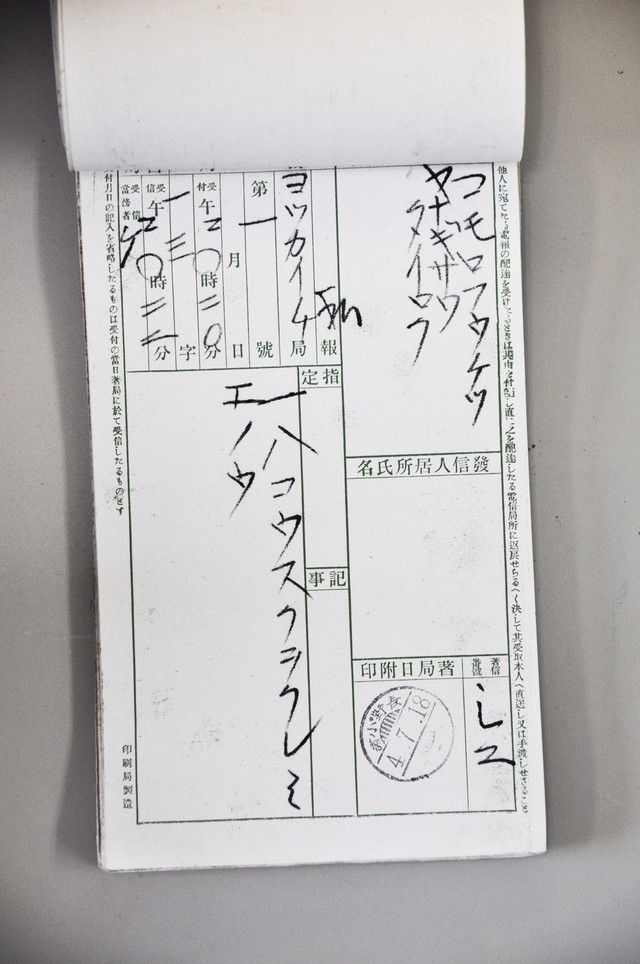 他人に宛てたる電報の配達を受けたるときは其由を付記し直に之を配達したる電信局所に返戻せらるへく決して其受取本人へ直送し又は手渡しせさること
コモロフウケツ
ヤナギサワ
タイロフ
發信人居所氏名
著信番號
著局日附印
長野
小諸
4.7.18
報
指定
記事
ヨツカイチ
局
第
一
號
月
日
受付
午
二〇
時
二〇
分
一三
字
受信
午
二〇
時
三二
分
受信當務者
一ハコウスクシクレミ
エノウ
付月日の記入を省略したるものは受付の當日著局に於て受信したるものとす
印刷局製造